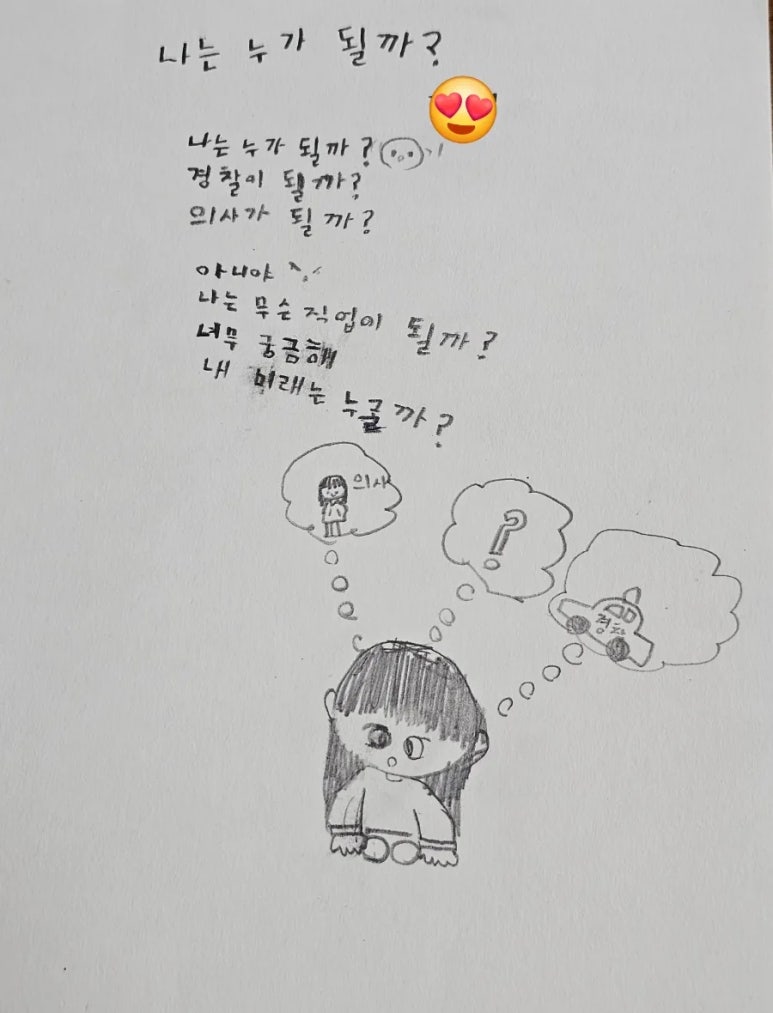 나는 누가 될까?
나는 누가 될까?
경찰이 될까?
의사가 될까?
아니야
나는 무슨 직업이 될까?
너무 궁금해
내 미래는 누굴까?
의사
?
경찰